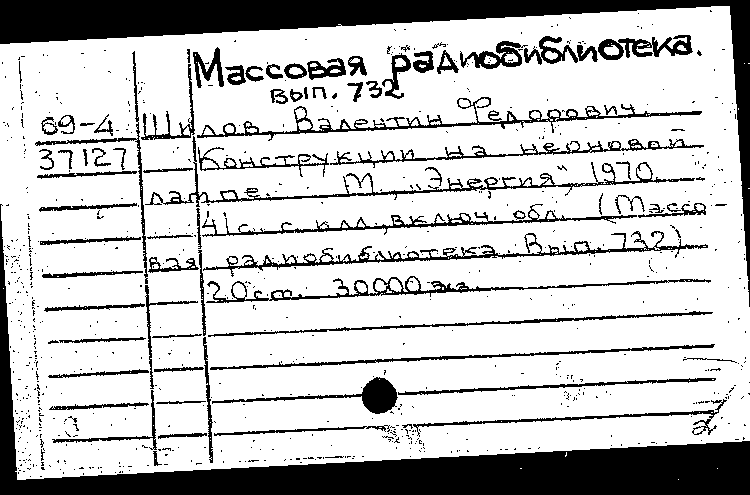 Массовая радиобиблиотека.
вып. 732
69-4 Шилов, Валентин Федорович.
37127 Конструкции на неоновой
лампе. М., „Энергия", 1970.
41с. с илл., включ. обл. (Массо-
вая радиобиблиотека. Вып. 732)
20см. 30000 экз.
2